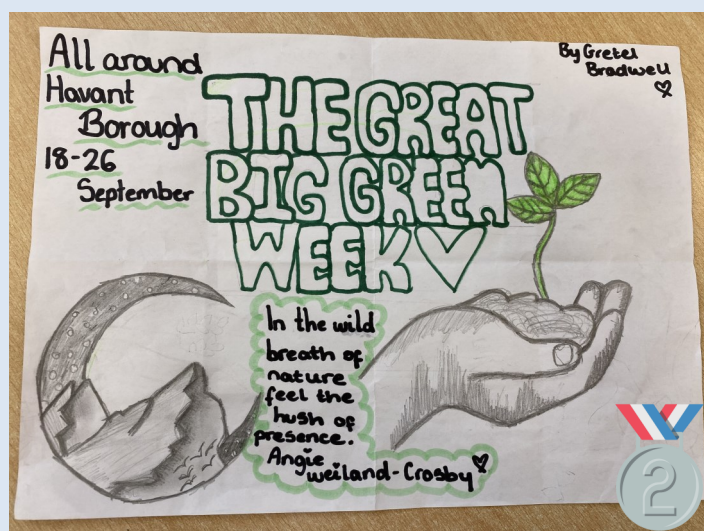 All around
Havant
Borough
18-26
September
By Gretel
Bradwell
THE GREAT
BIG GREEN
WEEK
In the wild
breath of
nature
feel the
hush of
presence.
Angie
weiland-Crosby
2